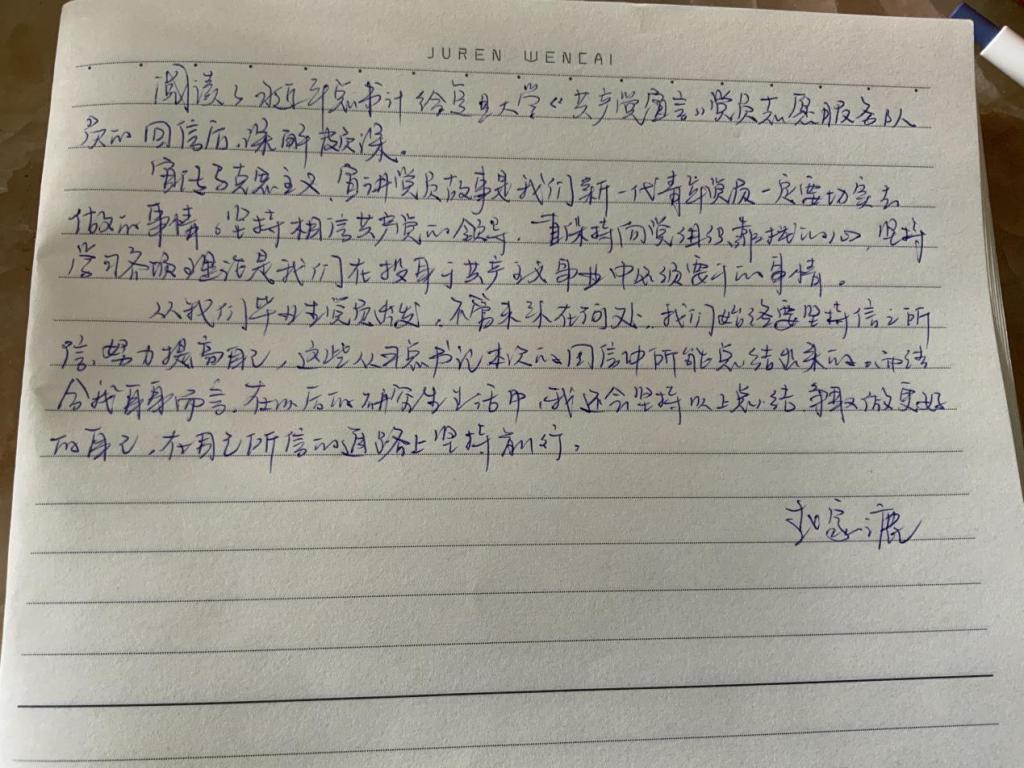 JUREN WENCAI
阅读了习近平总书记给复旦大学《共产党宣言》党员志愿服务队
队员的回信后,深解颇深。
宣传马克思主义,宣讲党员故事是我们新一代青年党员一定要切实去
做的事情。坚持相信共产党的领导,保持向党组织靠拢的心,坚持
学习各项理论是我们在投身于共产主义事业中必须要干的事情。
从我们毕业生党员出发,不管未来在何处,我们始终要坚持信之所
信,努力提高自己,这些从习总书记本次的回信中所能总结出来的。而结
合我自身而言,在以后的研究生生活中,我还会坚持以上总结,争取做更好
的自己,在自己所信的道路上坚持前行。